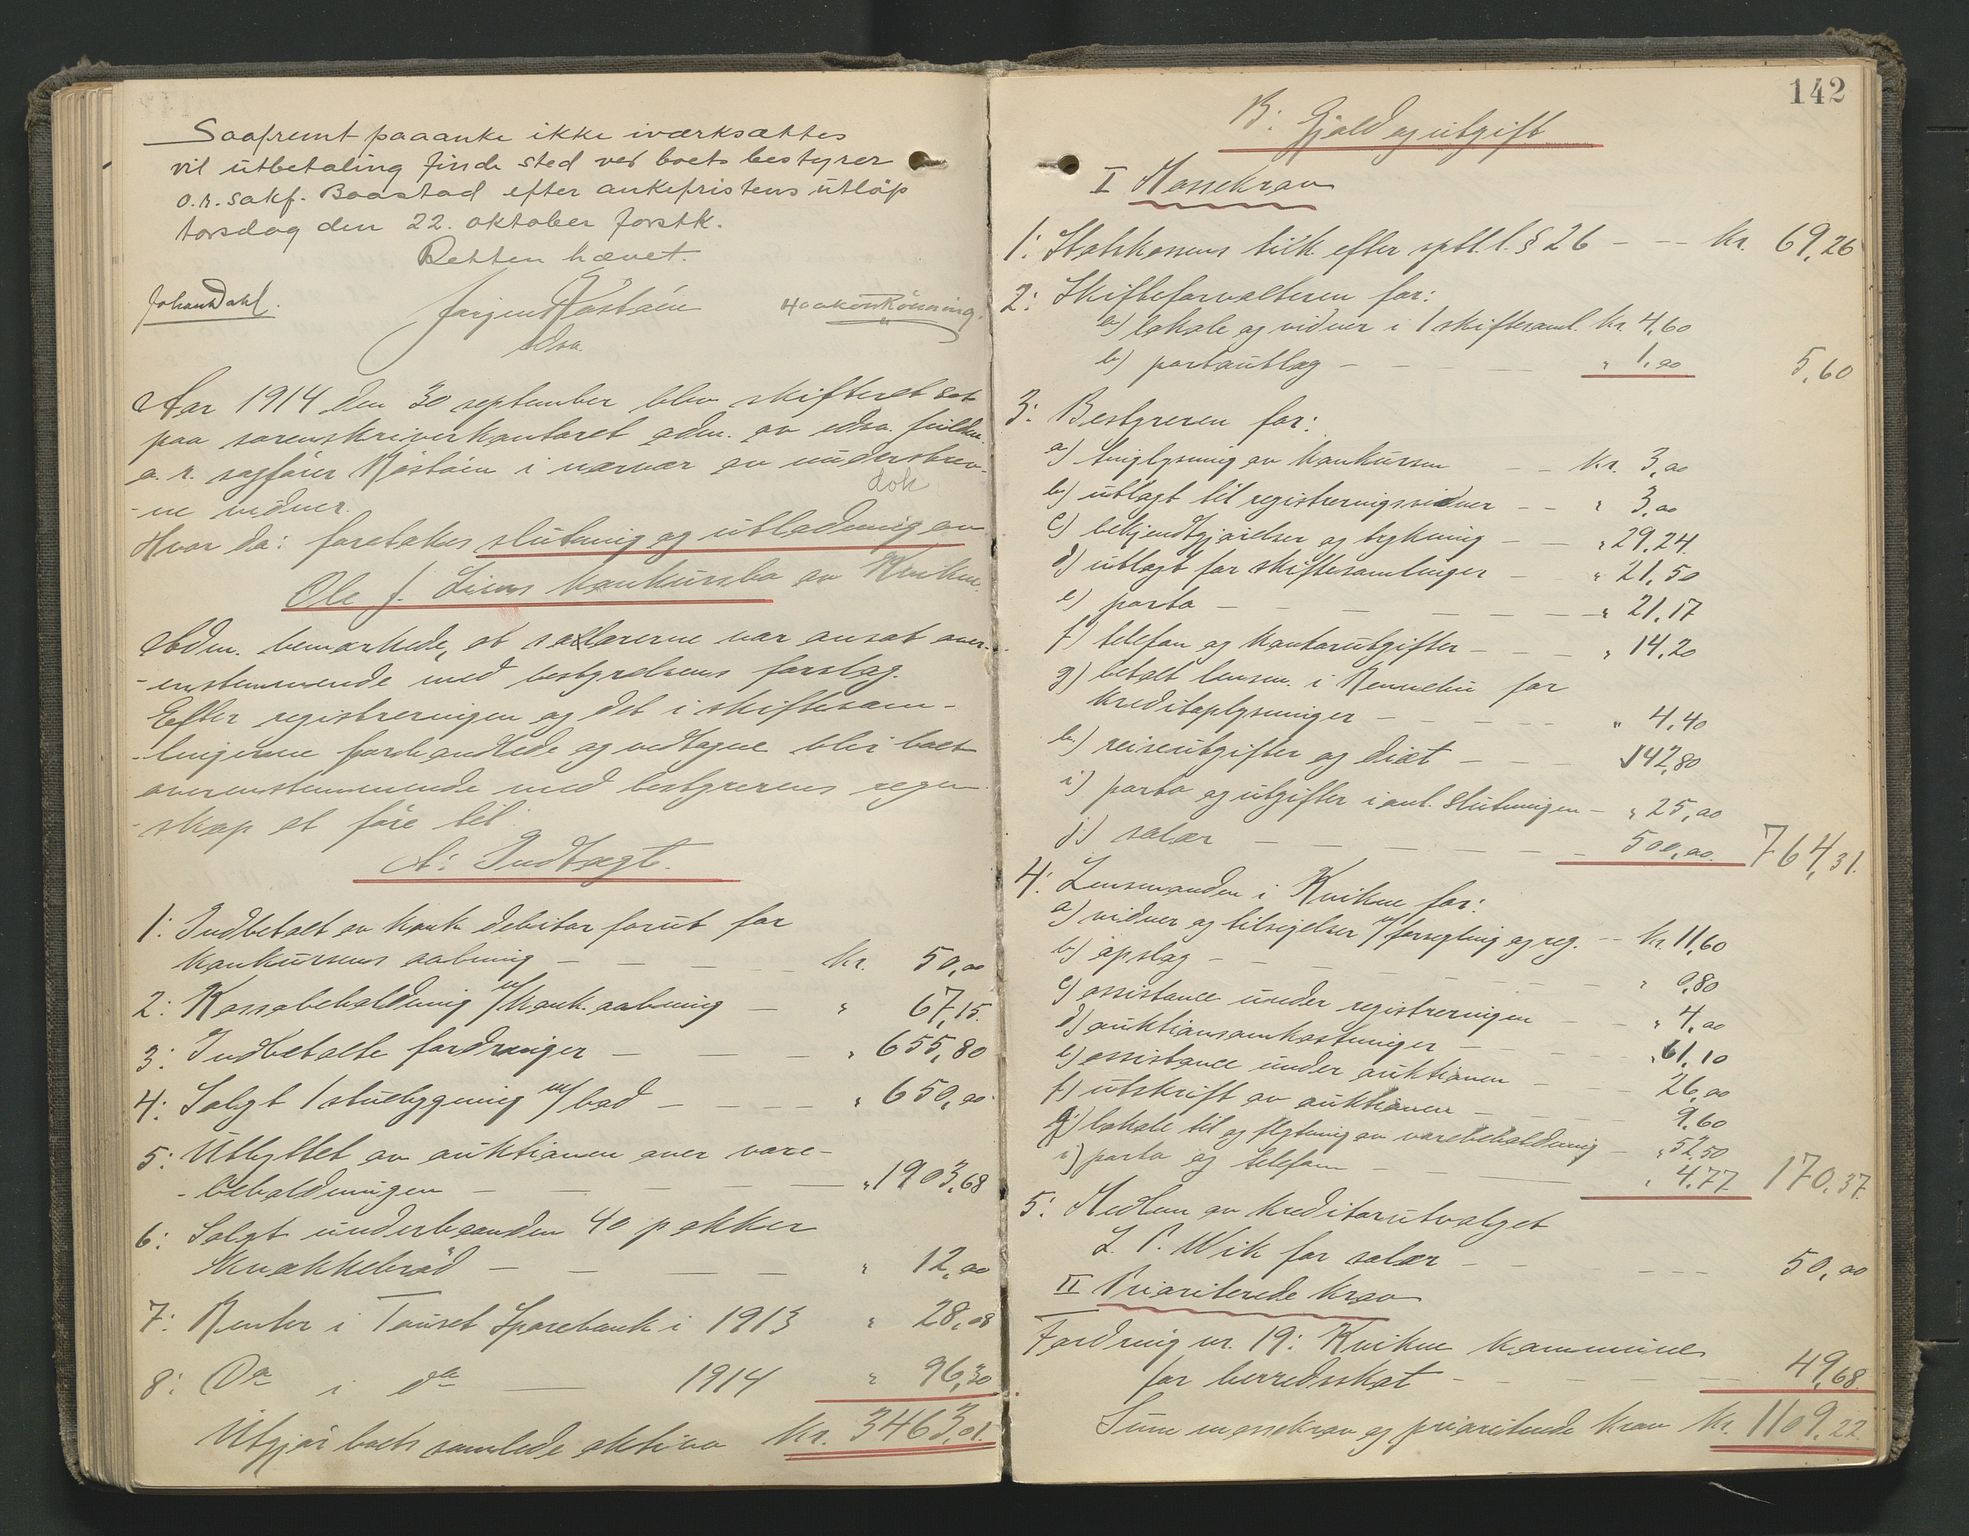 Saafremt paaanke ikke iværksættes
vil utbetaling finde sted ved boets bestyrer
o.r.sakf. Baastad efter ankefristens utløp
torsdag den 22. oktober førstk.
Retten hævet.
Johan Dahl. Jørgen Röstöen Haakon Rönning.
edsv.
Aar 1914 den 30 september blev skifteret sat
paa sorenskriverkontoret adm. av edsv. fuldm.
o.r. sagfører Röstöen i nærvær av underskrev-
-ne vidner.
dok
Hvor da: foretokes slutning og utlodning av
Ole J. Liens konkursbo av Kvikne.
Adm. bemærkede, at salærerne var ansat over-
-enstemmende med bestyrelsens forslag.
Efter registreringen og det i skiftesam-
-lingerne forhandlede og vedtagne blir boet
overenstemmende med bestyrerens regn-
-skap at føre til.
A: Indtægt.
1: Indbetalt av konk. debitor forut for
konkursens aabning – – – – kr. 50,00
2: Kassabeholdning v/konk. aabning – " 67,15.
3: Indbetalte fordringer – – – " 655,80
4: Solgt 1 stuebygning m/bod – – – – " 650,00
5: Utbyttet av auktionen over vare-
-beholdningen – – – – – " 1903,68
6: Solgt underhaanden 40 pakker
Knækkebrød – – – – " 12,00
7: Renter i Tønset Sparebank i 1913 " 28,08
8: Do i do – 1914 " 96,30
Utgjør boets samlede aktiva kr. 3463,01.
142
B: Gjeld og utgift
I Massekrav
1: Statskassens tilk. efter sptl. l. § 26 – – – kr. 69,26
2: Skifteforvalteren for:
a) lokale og vidner i 1 skiftesaml. kr 4,60
b) portoutlæg – – – – – " 1,00 5,60
3: Bestyreren for:
a) tinglysning av konkursen – – kr. 3,00
b) utlagt til registreringsvidner – – " 3,00
c) bekjendtgjørelser og trykning – – " 29,24.
d) utlagt for skiftesamlinger – – " 21,50
e) porto – – – – – – " 21,17
f) telefon og kontorutgifter – – – " 14,20
g) betalt lensm. i Rennebu for
kreditoplysninger – – – – – " 4,40
h) reiseutgifter og diæt – – – 142,80
i) porto og utgifter i anl. slutningen – " 25,00
j) salær – – – – – – 500,00. 764,31.
4: Lensmanden i Kvikne for:
a) vidner og tilsigelser v/forsegling og reg. – kr. 11,60
b) opslag – – – – – – – " 0,80
c) assistance under registreringen – – " 4,00
d) auktionsomkostninger – – – – " 61,10
e) assistance under auktionen – – 26,00
f) utskrift av auktionen – – – – 9,60
g) lokale til og flytning av varebeholdning – " 52,50
i) porto og telefon – – " 4,77 170,37.
5: Medlem av kreditorutvalget
L. P. Wik for salær – – – – – – 50,00
II Prioriterede krav
Fordring nr. 19: Kvikne kommune
for herredsskat – – – – – 49,68.
Sum massekrav og prioriterede krav kr. 1109,22.